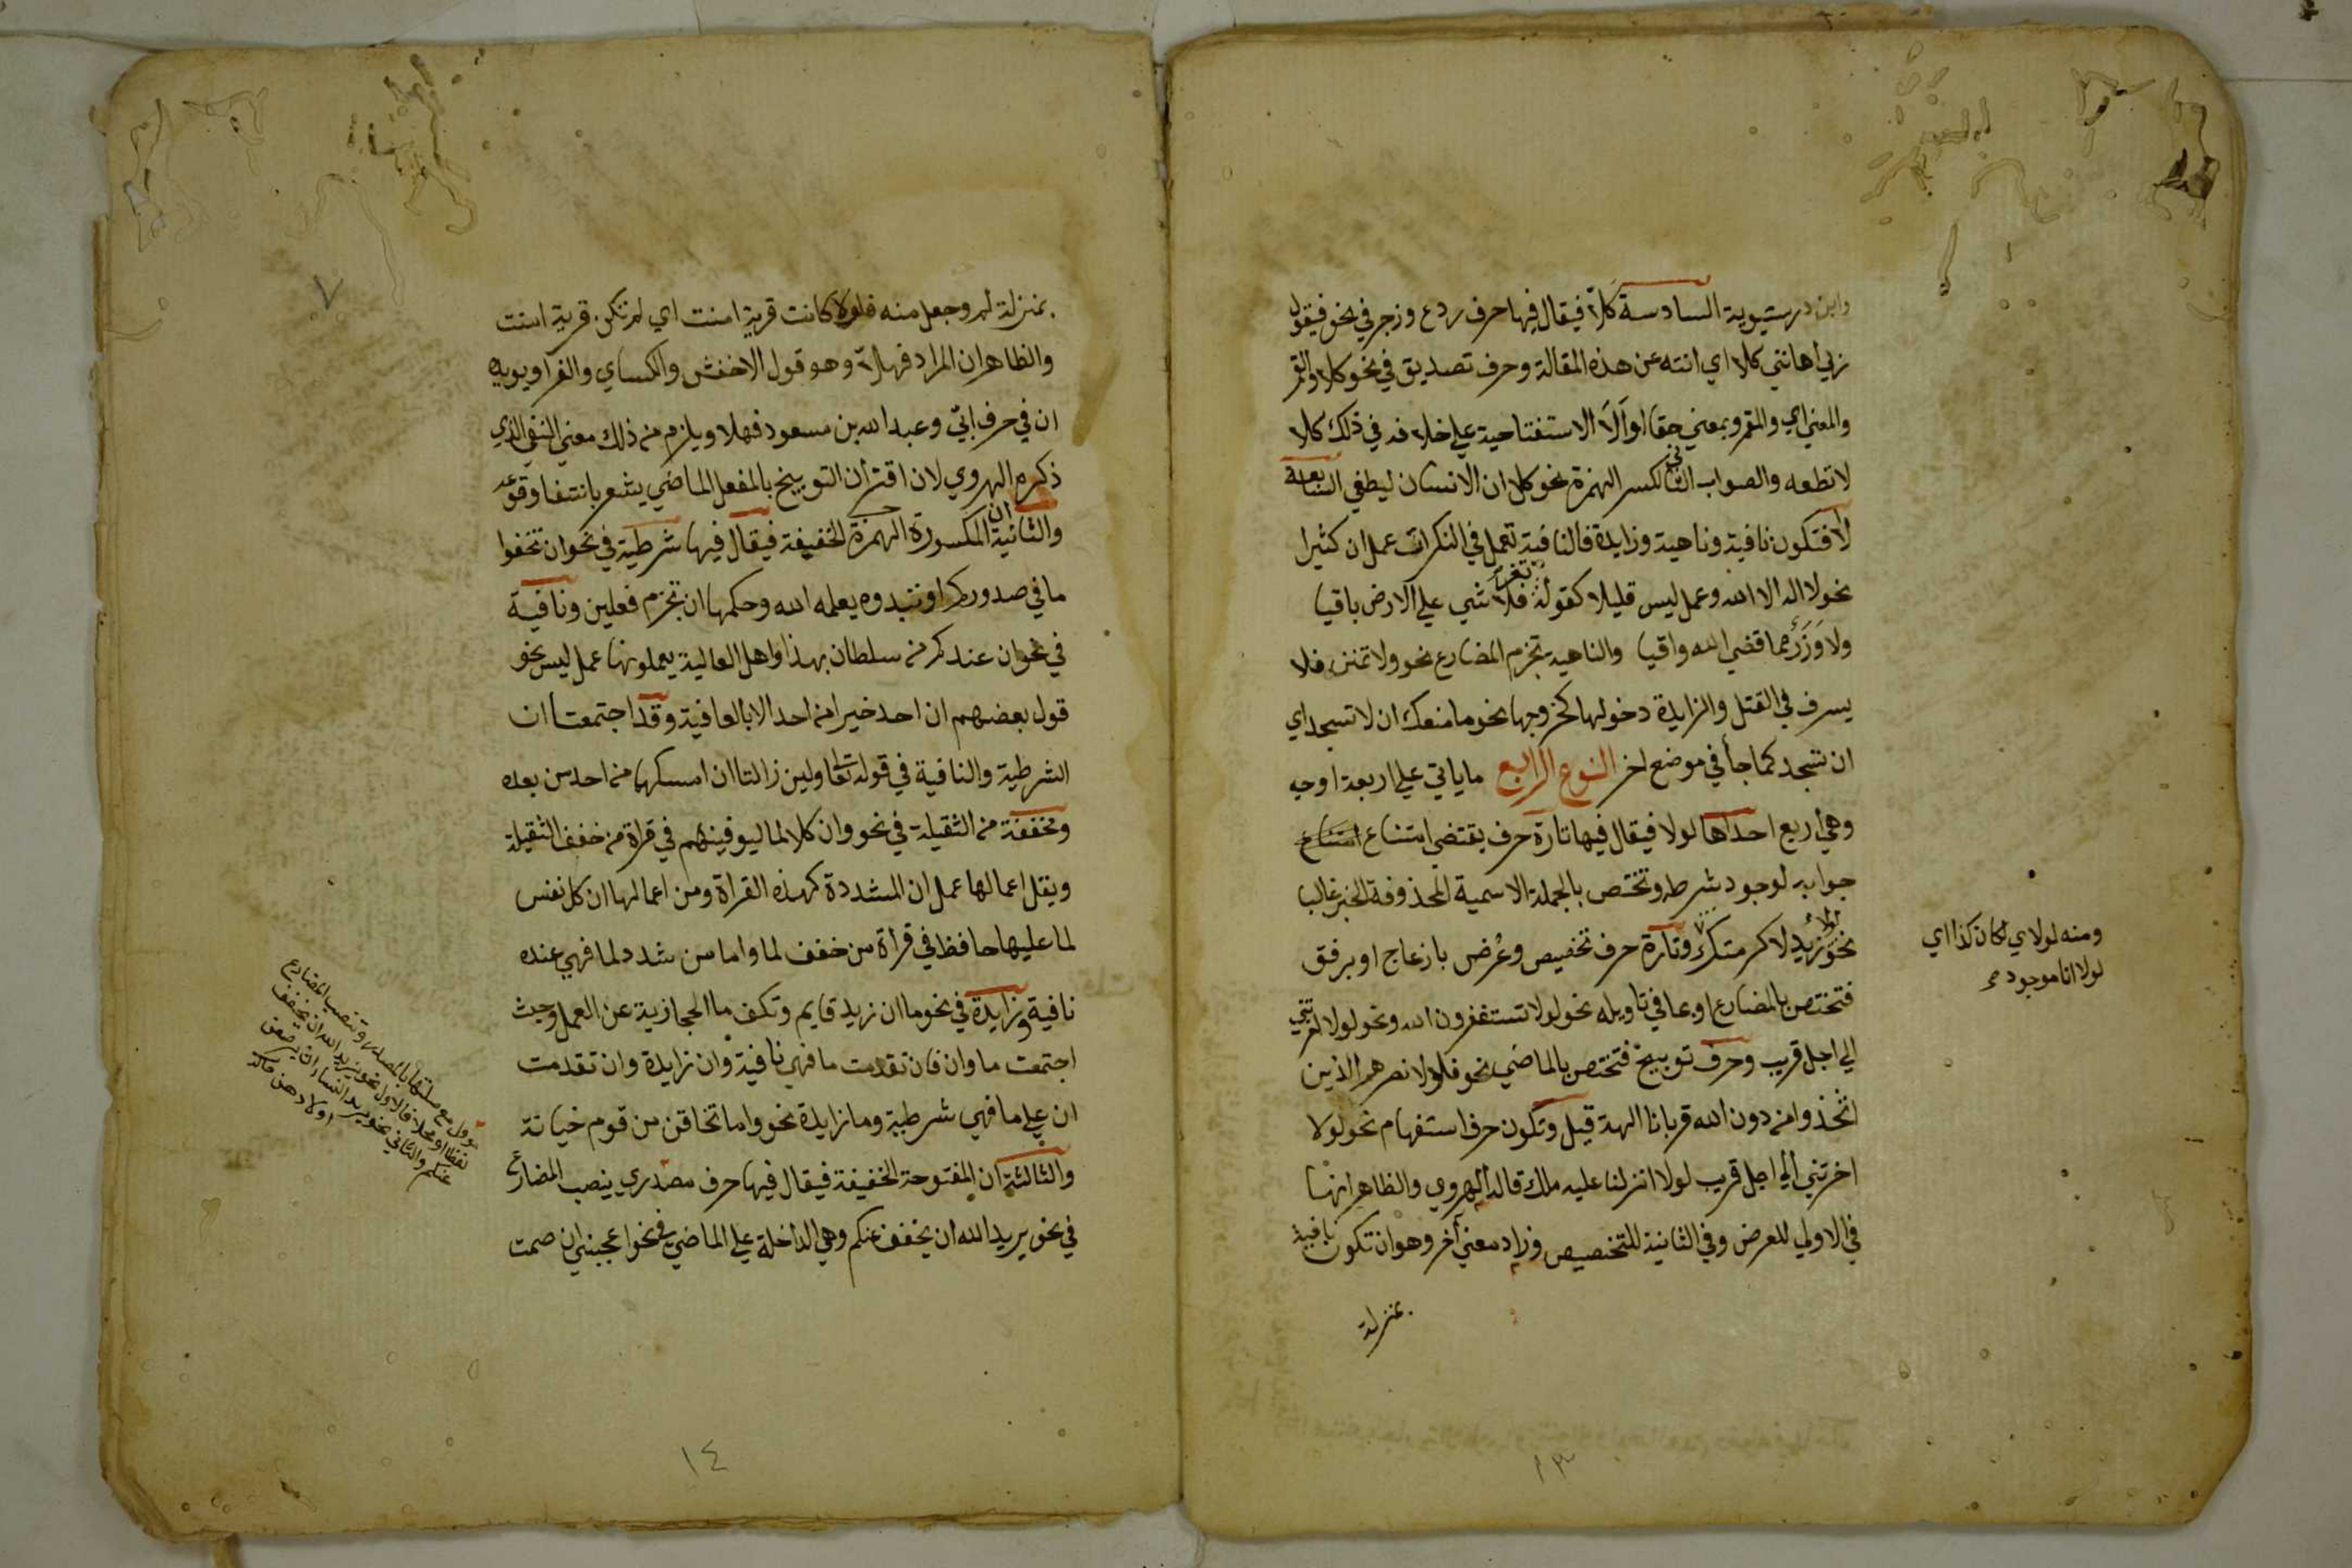 وابن درستيوية السادسة كلا فيقال فيها حرف ردع وزجر في نحو فيقول
ربي أهانني كلا اي انته عن هذه المقالة وحرف تصديق في نحو كلا والقمر
والمعني اي والقمر وبمعني حقا او ألا الاستفتاحية علي خلاف في ذلك كلا
لا تطعه والصواب الثاني لكسر الهمزة نحو كلا ان الانسان ليطغي السابعة
لا فتكون نافية وناهية وزايدة فالنافية تعمل في النكرات عمل ان كثيرا
نحو لا اله الا الله وعمل ليس قليلا كقوله تعز فلا شي علي الارض باقيا
ولا وزر مما قضي الله واقيا والناهية تجزم المضارع نحو ولا تمنن فلا
يسرف في القتل والزايدة دخولها كخروجها نحو ما منعك ان لا تسجد اي
ان تسجد كما جأ في موضع اخر النوع الرابع ما ياتي علي اربعة اوجه
وهي اربع احداها لولا فيقال فيها تارة حرف يقتضي امتناع امتناع
جوابه لوجود شرطه وتختص بالجملة الاسمية المحذوفة الخبر غالبا
نحو لولا زيد لاكرمتك وتارة حرف تحضيض وعرض بازعاج او برفق
فتختص بالمضارع او بما في تاويله نحو لولا تستغفرون الله ونحو لولا اخرتني
الي اجل قريب وحرف توبيخ فتختص بالماضي نحو فلولا نصرهم الذين
اتخذوا من دون الله قربانا الهة قيل وتكون حرف استفهام نحو لولا
اخرتني الي اجل قريب لولا انزلنا عليه ملك قاله الهروي والظاهر انها
في الاولي للعرض وفي الثانية للتخصيص وزاد معني آخر وهو ان تكون نافية
بمنزلة
ومنه لولاي لكان كذا اي
لولا انا موجود
١٣
٧
بمنزلة لم وجعل منه فلولا كانت قرية امنت اي لم تكن قرية امنت
والظاهر ان المراد فهلا وهو قول الاخفش والكساي والفرا ويويده
ان في حرف ابيّ وعبد الله بن مسعود فهلا ويلزم من ذلك معني النفي الذي
ذكره الهروي لان اقتران التوبيخ بالفعل الماضي يشعر بانتفا وقوعه
والثانية ان المكسورة الهمزة الخفيفة فيقال فيها شرطية في نحو ان تخفوا
ما في صدوركم او تبدوه يعلمه الله وحكمها ان تجزم فعلين ونافية
في نحو ان عندكم من سلطان بهذا واهل العالية يعملونها عمل ليس نحو
قول بعضهم ان احد خيرا من احد الا بالعافية وقد اجتمعتا ان
الشرطية والنافية في قوله تعالي ولين زالتا ان امسكهما من احد من بعده
ومخففة من الثقيلة في نحو وان كلا لما ليوفينهم في قراة من خفف الثقيلة
ويقل اعمالها عمل ان المشددة كهذه القراة ومن اعمالها ان كل نفس
لما عليها حافظ في قرأة من خفف لما واما من شدد لما فهي عنده
نافية وزايدة في نحو ما ان زيد قايم وتكف ما الحجازية عن العمل وحيث
اجتمعت ما وان فان تقدمت ما فهي نافية وان زايدة وان تقدمت
ان علي ما فهي شرطية وما زايدة نحو واما تخافن من قوم خيانة
والثالثة ان المفتوحة الخفيفة فيقال فيها حرف مصدري ينصب المضارع
في نحو يريد الله ان يخفف عنكم وهي الداخلة علي الماضي في نحو اعجبني ان صمت
موول مع صلتها بالمصدر وتنصب المضارع
لفظا او محلا فالاول نحو يريد الله ان يخفف
عنكم والثاني نحو يريد النسا ان يرضعن
اولادهن
١٤